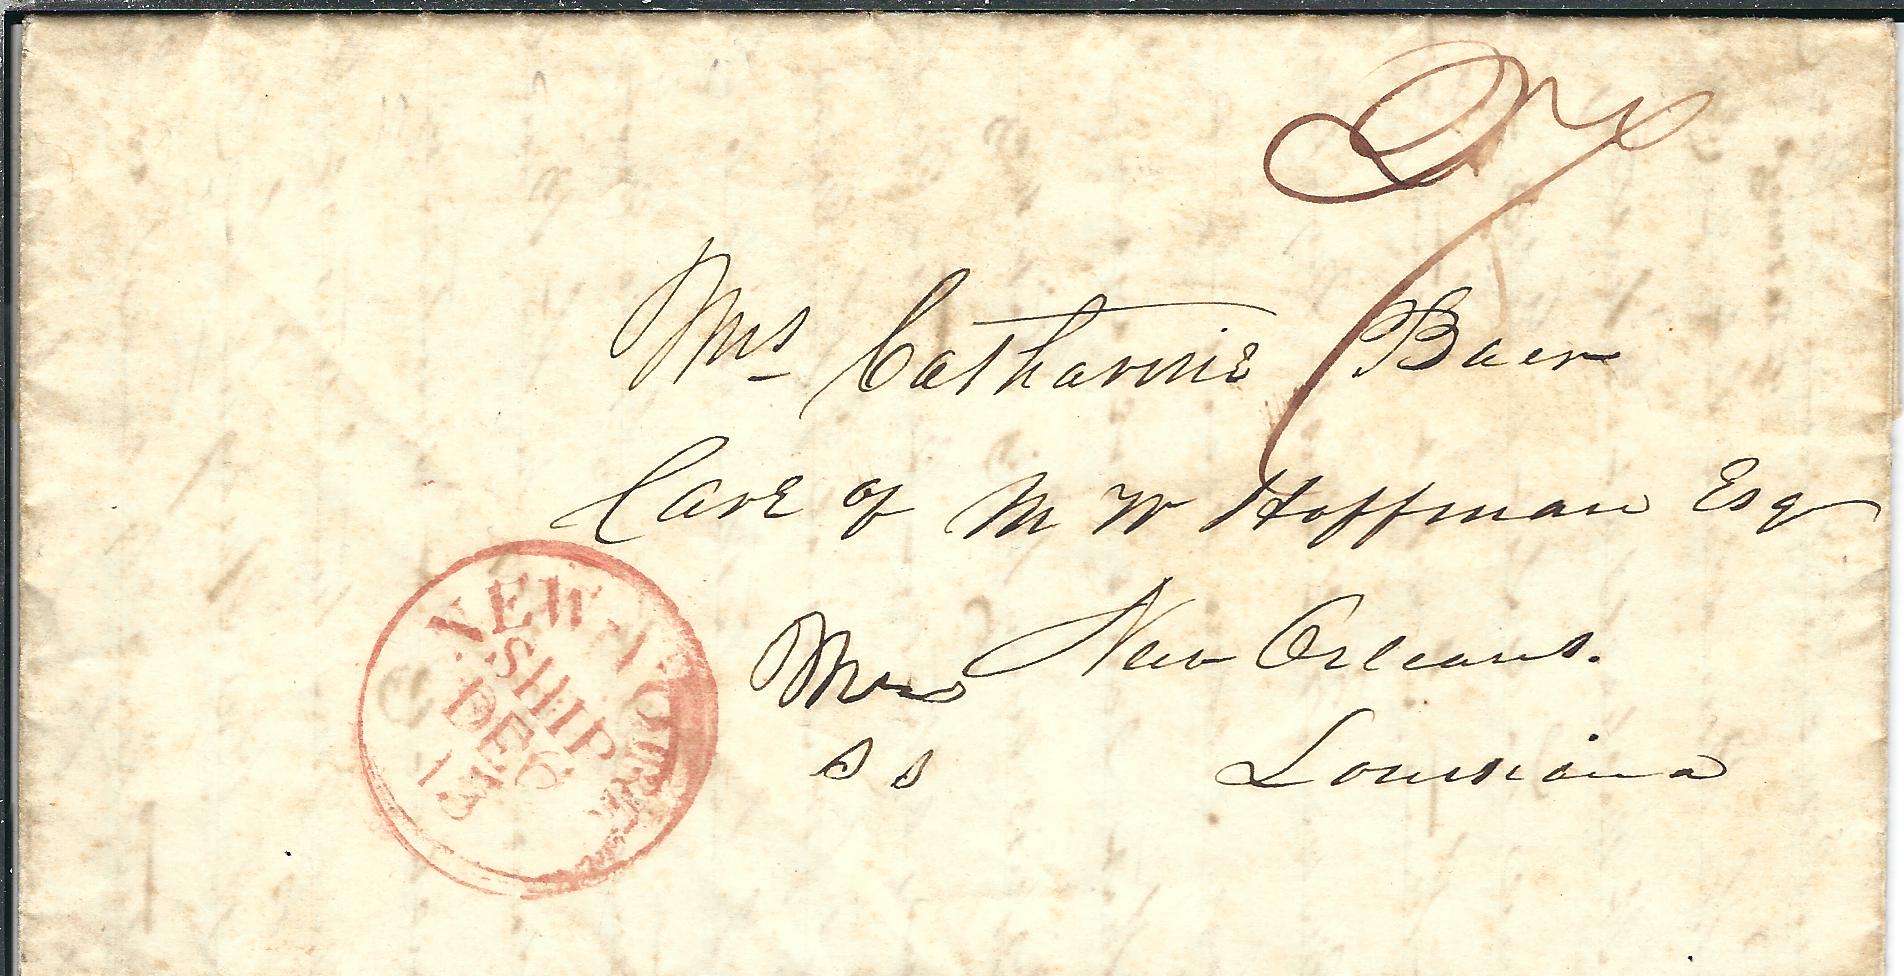 Mrs Catharine Baer
Care of M W Hoffman Esq
New Orleans.
Louisiana
ss
NEW-YORK
SHIP
DEC
13